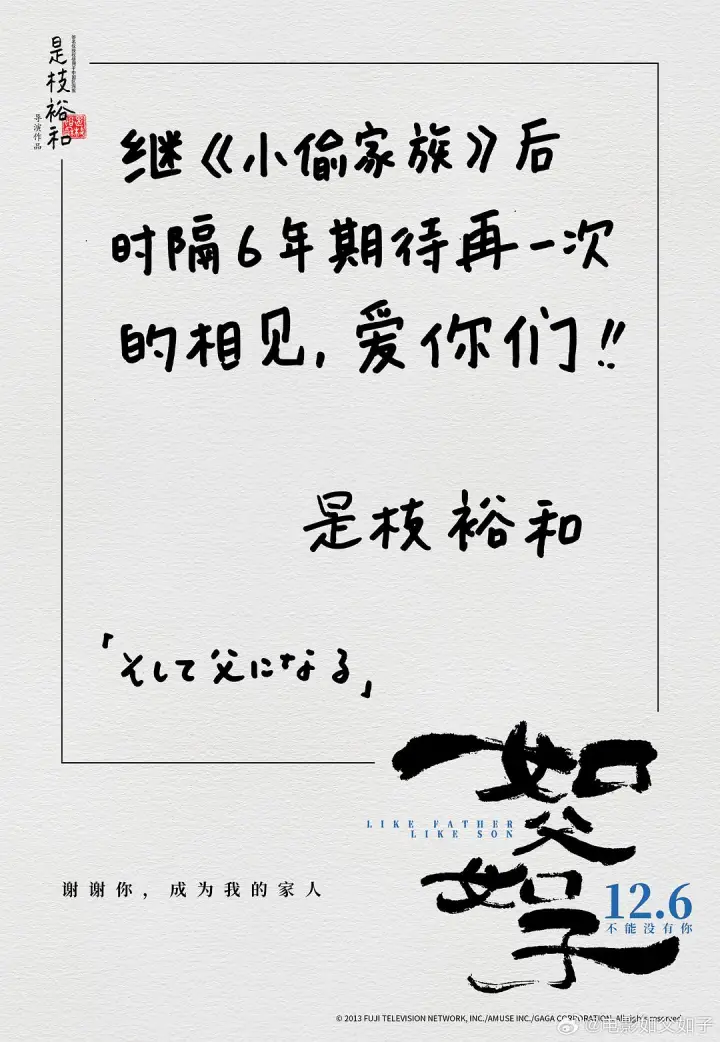 是枝裕和
导演作品
继《小偷家族》后
时隔6年期待再一次
的相见,爱你们!!
是枝裕和
「そして父になる」
如父如子
LIKE FATHER
LIKE SON
12.6
不能没有你
谢谢你，成为我的家人
© 2013 FUJI TELEVISION NETWORK, INC./AMUSE INC./GAGA CORPORATION. All rights reserved.
@电影如父如子